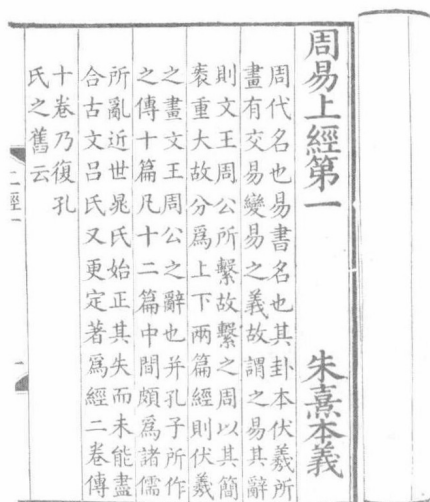 周易上經第一　朱熹本義
周代名也易書名也其卦本伏羲所
畫有交易變易之義故謂之易其辭
則文王周公所繫故繫之周以其簡
袠重大故分爲上下兩篇經則伏羲
之畫文王周公之辭也并孔子所作
之傳十篇凡十二篇中間頗爲諸儒
所亂近世晁氏始正其失而未能盡
合古文呂氏又更定著爲經二卷傳
十卷乃復孔
氏之舊云
經一
一